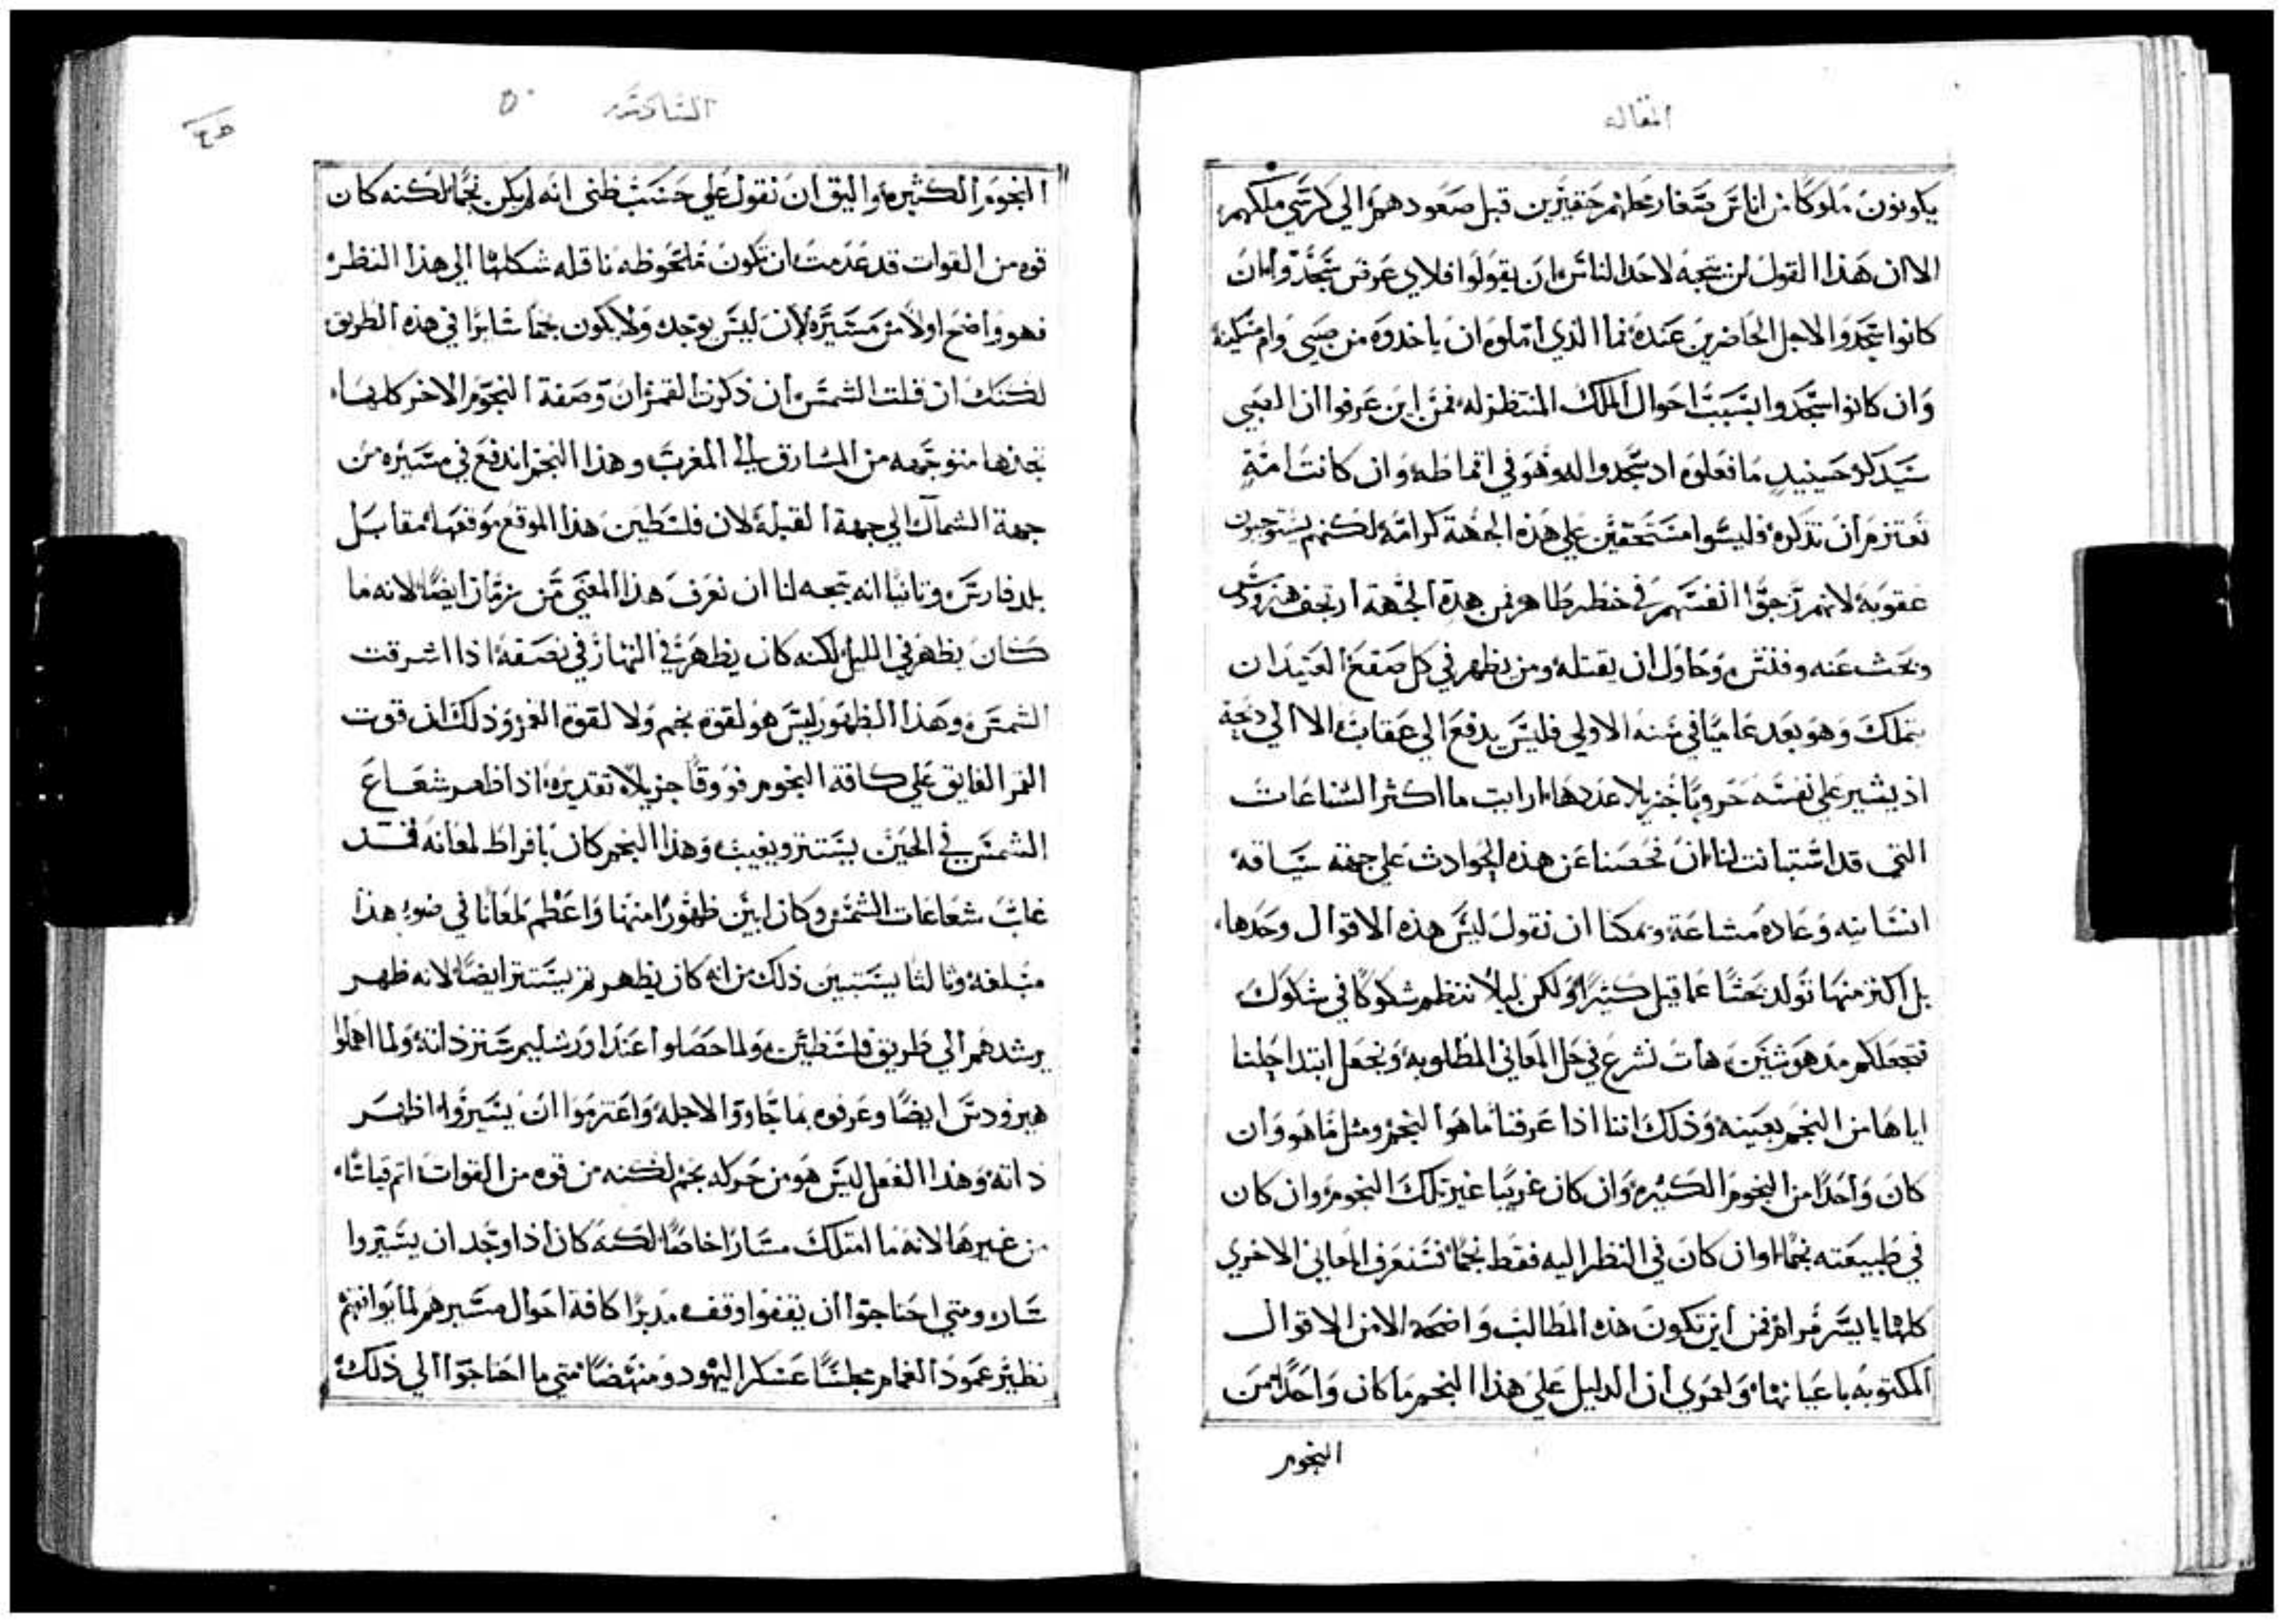 المقاله
يكونون ملوكًا من اناس صغار محلهم حقيرين قبل صعودهم الي كرسي ملكهم
الا ان هذا القول لن يتجه لاحد الناس ان يقولوا فلاي غرض سجدوا وان
كانوا سجدوا لاجل الحاضرين عنده فما الذي املوه ان ياخدوه من صبي وام مسكينة
وان كانوا سجدوا بسبب احوال الملك المنتظر له فمن اين عرفوا ان الصبي
سيدكر حينيدٍ ما فعلوه اد سجدوا له وهو في اقماطه وان كانت امه
تعتزم ان تدكره فليسوا مستحقين علي هذه الجهة كرامة لكنهم يستوجبون
عقوبة لانهم زجوا انفسهم في خطر ظاهر فمن هده الجهة ارتجف هيرودس
وبحث عنه وفتش وحاول ان يقتله ومن يظهر في كل صقع العتيد ان
يتملك وهو بعد عاميًا في سنه الاولي فليس يدفع الي عقاب الا الي دبحة
اد يشير علي نفسه حروبًا جزيلا عددها ارايت ما اكثر الشناعات
التي قد استبانت لنا ان فحصنا عن هذه الحوادث علي جهة سياقة
انسانيه وعادة مشاعة ويمكنا ان نقول ليس هذه الاقوال وحدها
بل اكثر منها تولد بحثًا عما قيل كثيرًا ولكن ليلا ننظم شكوكًا في شكوك
فتجعلكم مدهوشين هات نشرع في حل المعاني المطلوبة ونجعل ابتدا حلنا
اياها من النجم بعينه وذلك اننا اذا عرفنا ما هو النجم ومثل ما هو وان
كان واحدًا من النجوم الكثيرة وان كان غريبًا غير تلك النجوم وان كان
في طبيعته نجمًا اوان كان في النظر اليه فقط نجمًا فسنعرف المعاني الاخري
كلها بايسر مرام فمن اين تكون هذه المطالب واضحة الا من الاقوال
المكتوبه باعيانها ولعمري ان الدليل علي هذا النجم ما كان واحدًا من
النجوم
السادسه ٥٠
النجوم الكثيرة واليق ان نقول علي حسب ظني انه لم يكن نجمًا لكنه كان
قوه من القوات قد عدمت ان تكون ملحوظه ناقله شكلها الي هذا النظر
فهو واضح اولاً من مسيره لان ليس يوجد ولا يكون نجمًا سايرًا في هذه الطريق
لكنك ان قلت الشمس ان ذكرت القمر ان وصفة النجوم الاخر كلها
نجدها متوجهه من المشارق الي المغرب وهذا النجم اندفع في مسيره من
جهة الشمال الي جهة القبلة لان فلسطين هذا الموقع موقعها مقابل
بلد فارس وثانيًا انه يتجه لنا ان نعرف هذا المعني من زمان ايضًا لانه ما
كان يظهر في الليل لكنه كان يظهر في النهار في نصفه اذا اشرقت
الشمس وهذا الظهور ليس هو لقوة نجم ولا لقوة القمر وذلك ان قوت
القمر الفايق علي كافة النجوم فووقًا جزيلا تقديره اذا ظهر شعاع
الشمس في الحين يستتر ويغيب وهذا النجم كان بافراط لمعانه فقد
غلب شعاعات الشمس وكان ابين ظهورًا منها واعظم لمعانًا في ضوء هذا
مبلغه وثالثًا يستبين ذلك من انه كان يظهر ثم يستتر ايضًا لانه ظهر
يرشدهم الي طريق فلسطين ولما حصلوا عند اورشليم ستر ذاته ولما اهملوا
هيرودس ايضًا وعرفوه بما جاووا لاجله واعتزموا ان يسيروا اظهر
ذاته وهذا الفعل ليس هو من حركه نجم لكنه من قوه من القوات اتم قياسًا
من غيرها لانه ما امتلك مسارًا خاصًا لكنه كان اذا وجد ان يسيروا
سار ومتي احتاجوا ان يقفوا وقف مدبرًا كافة احوال مسيرهم لما يوافقهم
نظير عمود الغمام مجلسًا عسكر اليهود ومنهضًا متي ما احتاجوا الي ذلك